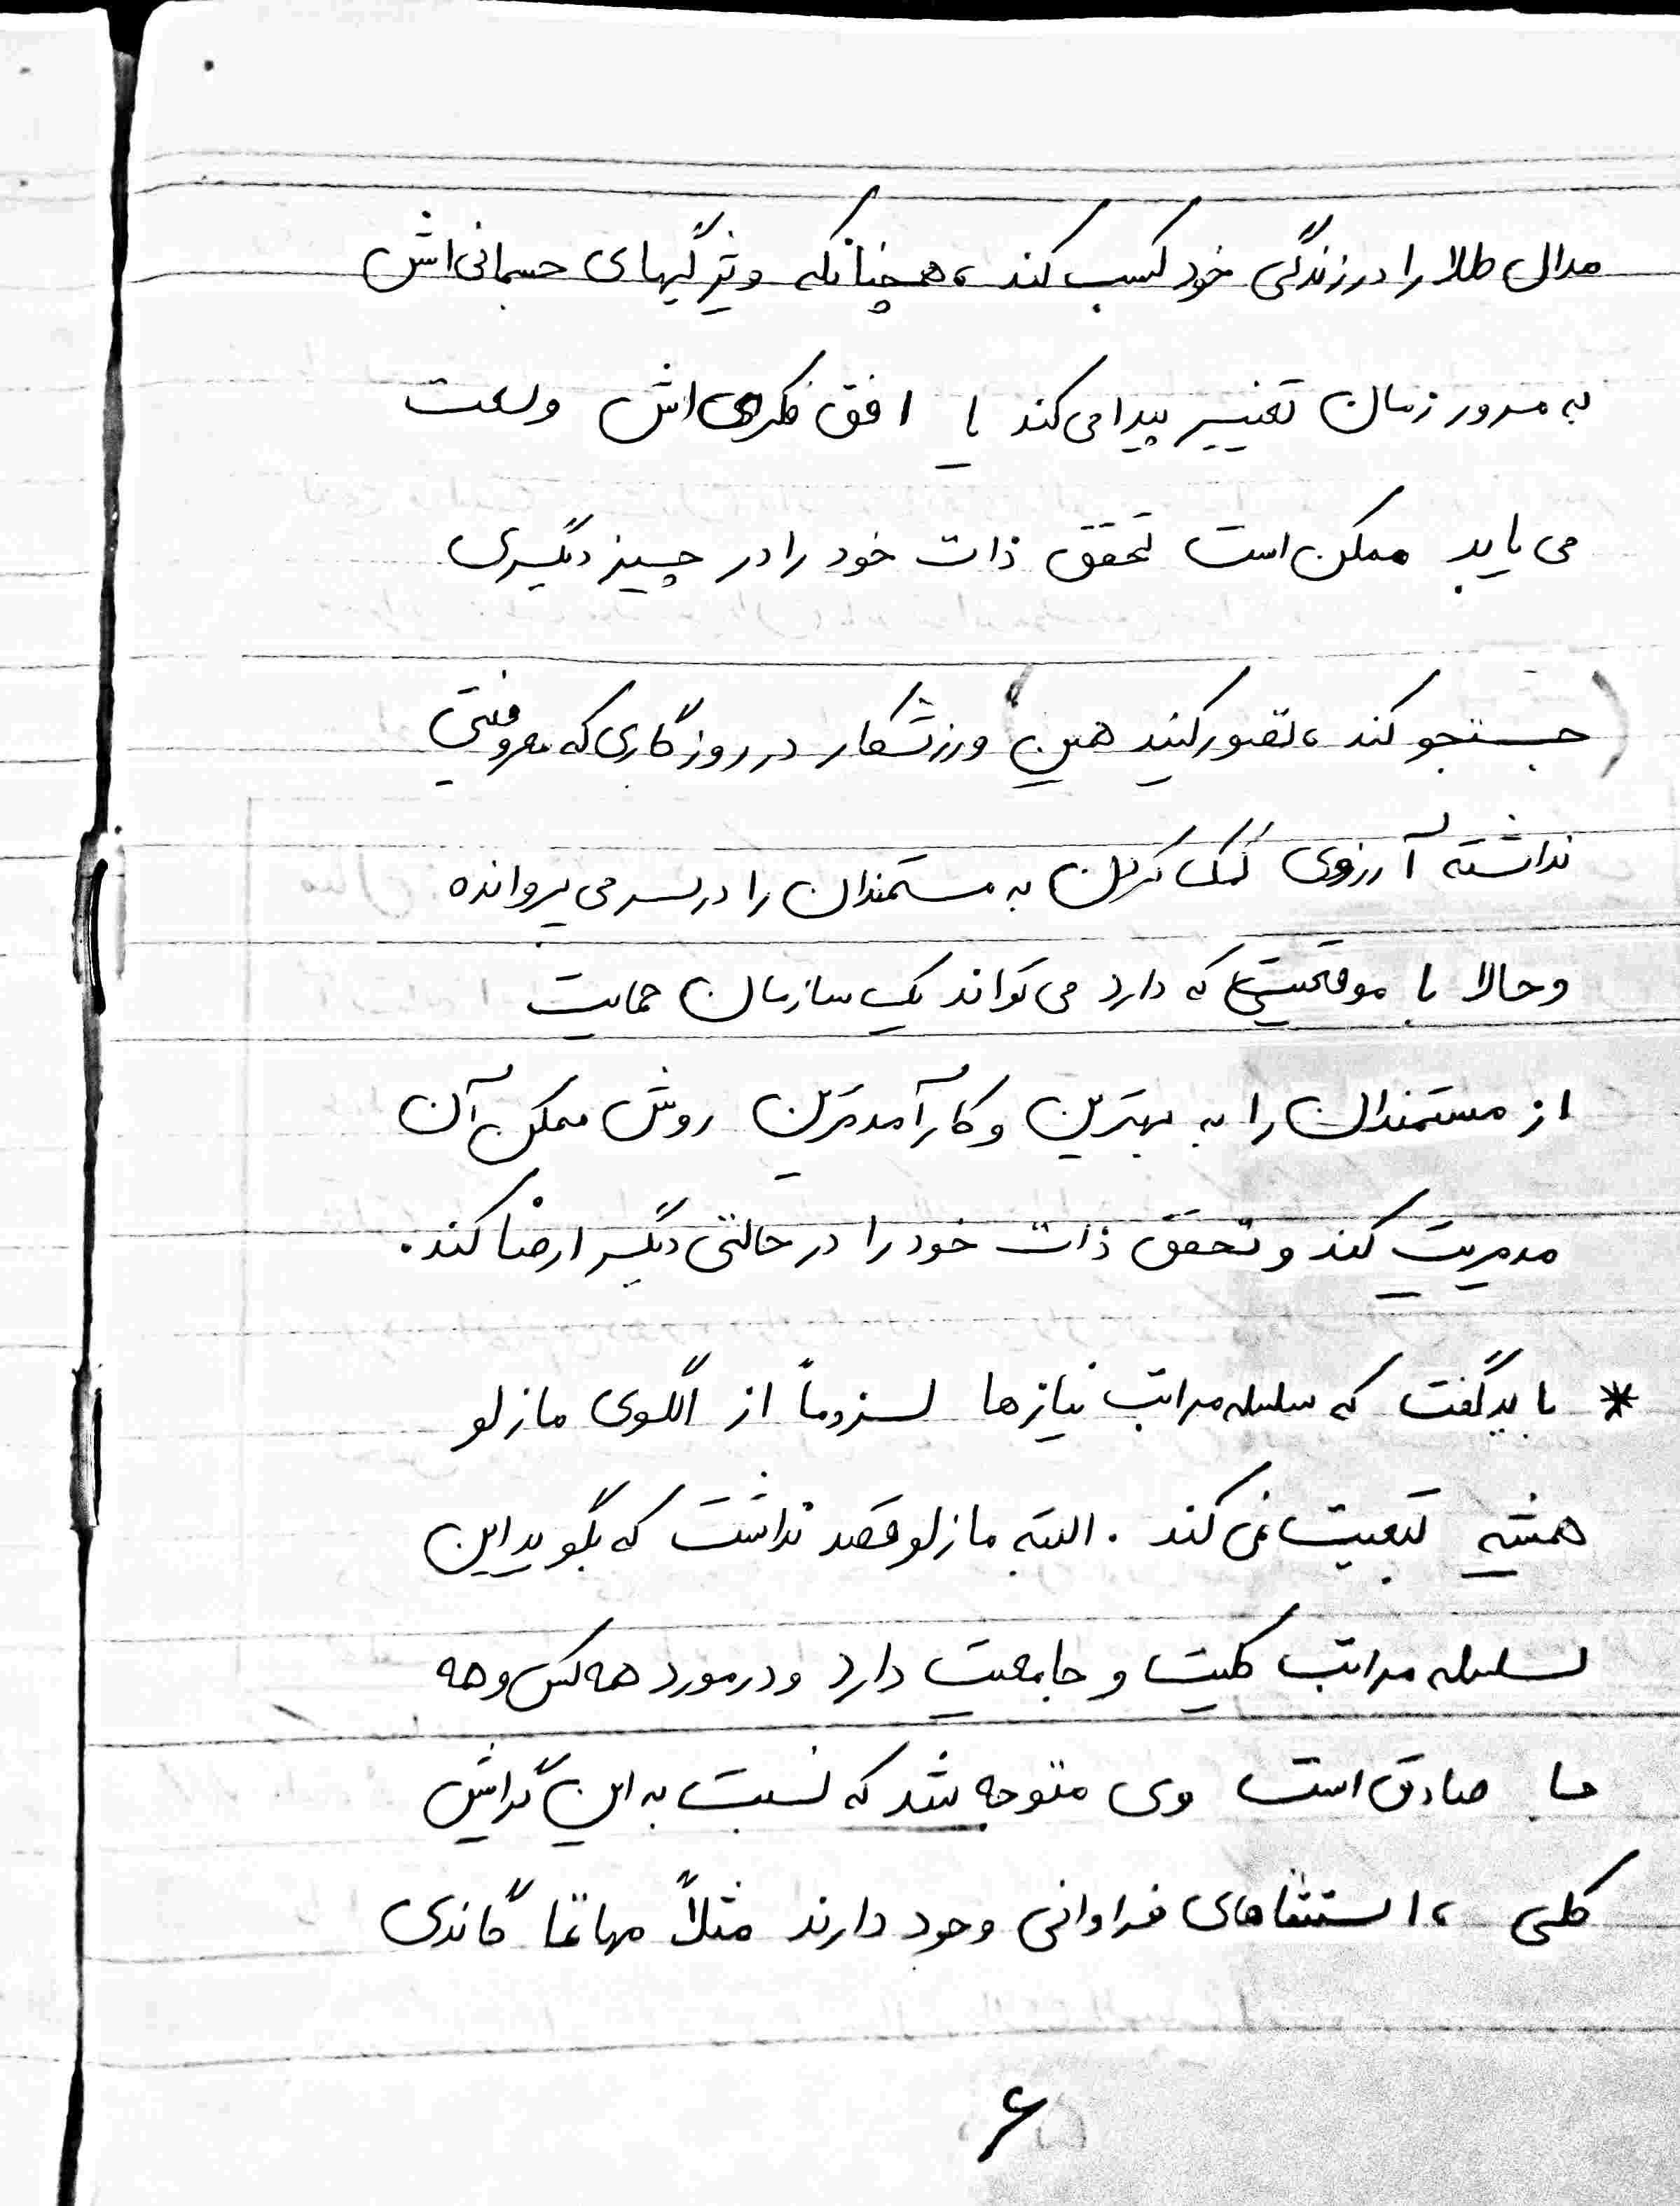 مدال طلا را در زندگی خود کسب کند، همچنانکه ویژگیهای جسمانی‌اش
به مرور زمان تغییر پیدا می‌کند یا افق فکری‌اش وسعت
می‌یابد ممکن است تحقق ذات خود را در چیز دیگری
(جستجو کند، تصور کنید همین) ورزشکار در روزگاری که معروفیتی
نداشته آرزوی کمک کردن به مستمندان را در سر می‌پرورانده
و حالا با موقعیتی که دارد می‌تواند یک سازمان حمایت
از مستمندان را به بهترین و کارآمدترین روش ممکن آن
مدیریت کند و تحقق ذات خود را در حالتی دیگر ارضا کند.
* باید گفت که سلسله مراتب نیازها لزوماً از الگوی مازلو
همیشه تبعیت نمی‌کند. البته مازلو قصد نداشت که بگوید این
سلسله مراتب کلیت و جامعیت دارد و در مورد همه کس و همه
جا صادق است وی متوجه شد که نسبت به این گرایش
کلی، استثناهای فراوانی وجود دارند مثلاً مهاتما گاندی
۶